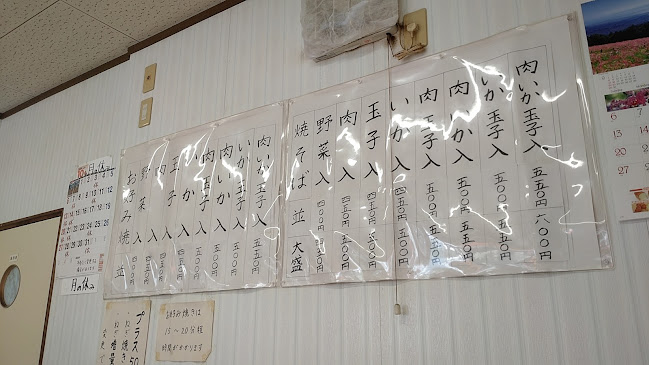 焼そば 並 大盛
野菜入 四〇〇円 四五〇円
肉入 四五〇円 五〇〇円
玉子入 四五〇円 五〇〇円
いか入 四五〇円 五〇〇円
肉玉子入 五〇〇円 五五〇円
肉いか入 五〇〇円 五五〇円
いか玉子入 五〇〇円 五五〇円
肉いか玉子入 五五〇円 六〇〇円
お好み焼 並
野菜入 四〇〇円
肉入 四五〇円
玉子入 四五〇円
いか入 四五〇円
肉玉子入 五〇〇円
肉いか入 五〇〇円
いか玉子入 五〇〇円
肉いか玉子入 五五〇円
月の休み
プラス50
お好み焼きは
15〜20分程
時間がかかります
6
13
20
27